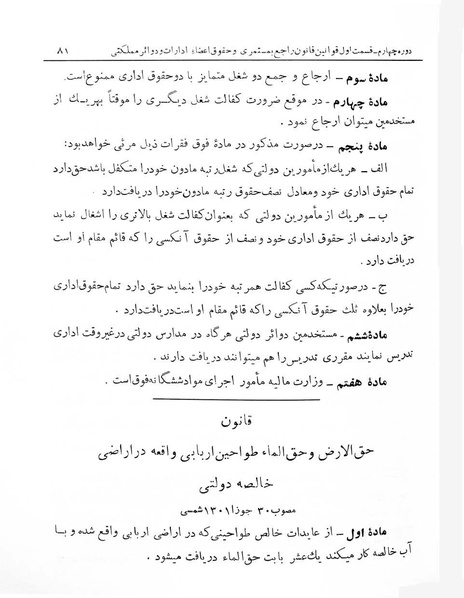 دوره چهارم ـ قسمت اول قوانین قانون راجع بمستمری و حقوق اعضاء ادارات و دوائر مملکتی ۸۱
مادهٔ سوم ـ ارجاع و جمع دو شغل متمایز با دو حقوق اداری ممنوع است.
مادهٔ چهارم ـ در موقع ضرورت کفالت شغل دیگری را موقتاً بهریك از
مستخدمین میتوان ارجاع نمود .
مادهٔ پنجم ـ در صورت مذکور در مادهٔ فوق فقرات ذیل مرئی خواهد بود:
الف ـ هر یك از مأمورین دولتی که شغل رتبه مادون خود را متکفل باشد حق دارد
تمام حقوق اداری خود و معادل نصف حقوق رتبه مادون خود را دریافت دارد
ب ـ هر یك از مأمورین دولتی که بعنوان کفالت شغل بالاتری را اشغال نماید
حق دارد نصف از حقوق اداری خود و نصف از حقوق آنکسی را که قائم مقام او است
دریافت دارد .
ج ـ در صورتیکه کسی کفالت همرتبه خود را بنماید حق دارد تمام حقوق اداری
خود را بعلاوه ثلث حقوق آنکسی را که قائم مقام او است دریافت دارد .
مادهٔ ششم ـ مستخدمین دوائر دولتی هرگاه در مدارس دولتی در غیر وقت اداری
تدریس نمایند مقرری تدریس را هم میتوانند دریافت دارند .
مادهٔ هفتم ـ وزارت مالیه مأمور اجرای مواد ششگانه فوق است .
قانون
حق الارض و حق الماء طواحین اربابی واقعه در اراضی
خالصه دولتی
مصوب ۳۰ جوزا ۱۳۰۱ شمسی
مادهٔ اول ـ از عایدات خالص طواحینی که در اراضی اربابی واقع شده و بـا
آب خالصه کار میکند یك عشر بابت حق الماء دریافت میشود .